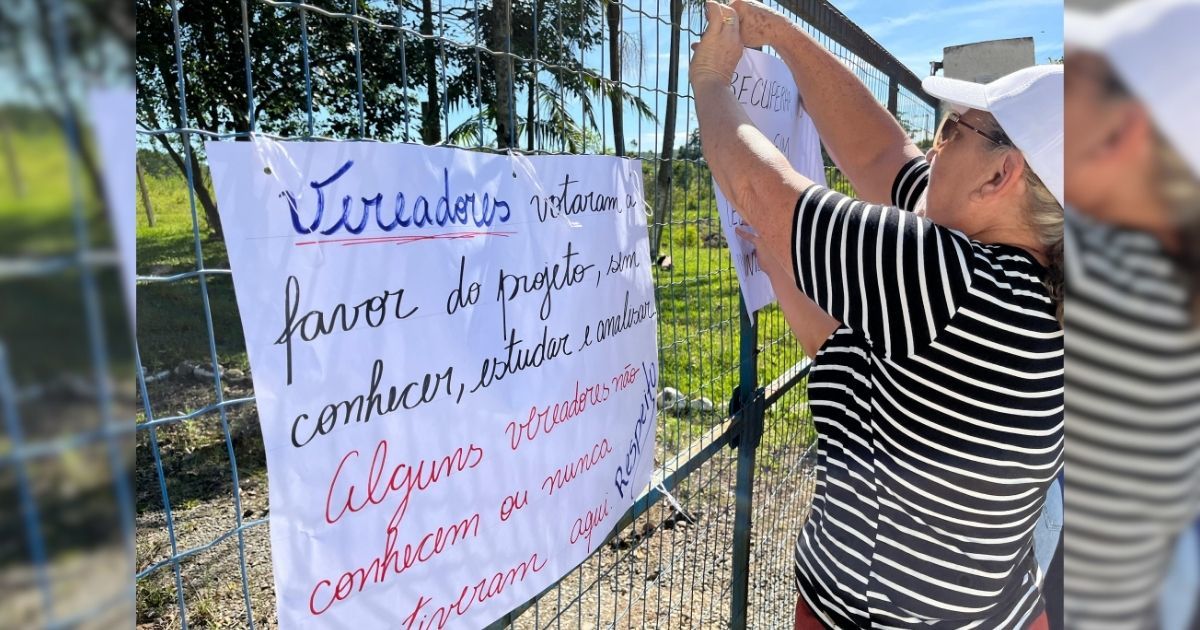 Vereadores votaram a
favor do projeto, sem
conhecer, estudar e analisar.
Alguns vereadores não
conhecem ou nunca
tiveram aqui. Respeito!
RECUPERA
EM